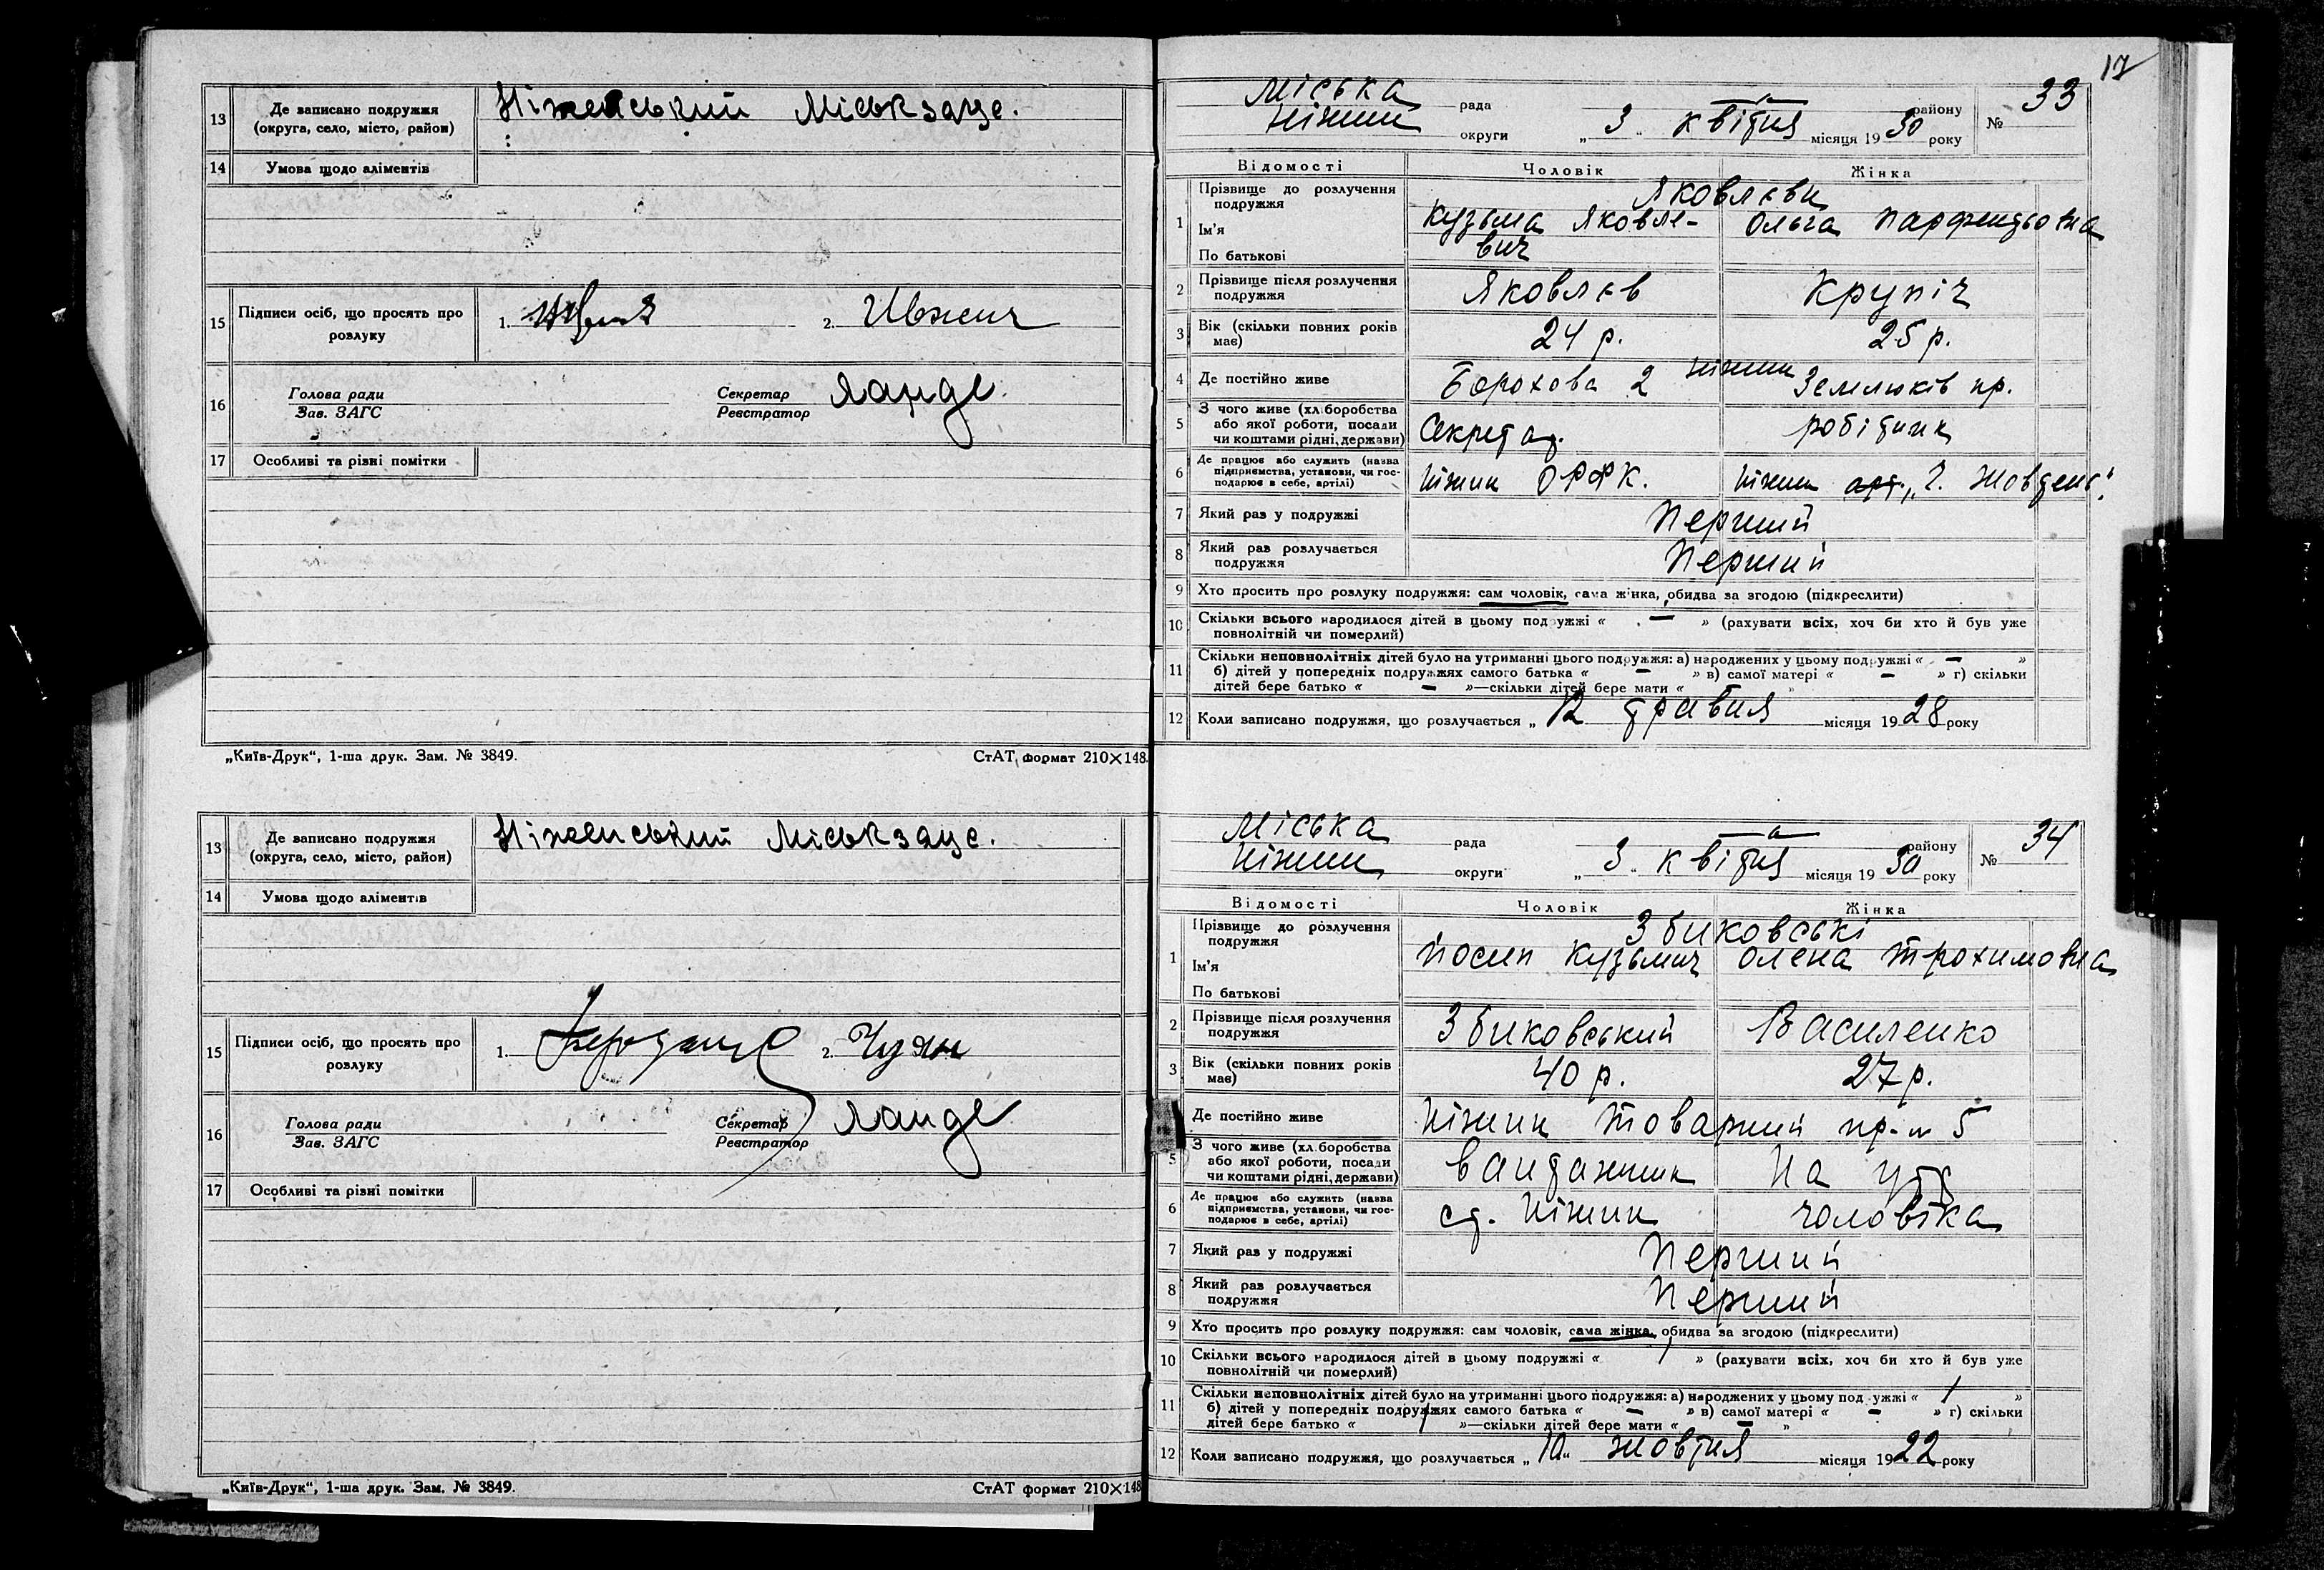 13 Де записано подружжя (округа, село, місто, район) Ніженський Міськзагс.
14 Умова щодо аліментів
15 Підписи осіб, що просять про розлуку 1. 2. Ивжич
16 Голова ради Зав. ЗАГС Секретар Реєстратор Ланде
17 Особливі та різні помітки
„Київ-Друк“, 1-ша друк. Зам. № 3849. СтАТ формат 210×148.
13 Де записано подружжя (округа, село, місто, район) Ніженський Міськзагс.
14 Умова щодо аліментів
15 Підписи осіб, що просять про розлуку 1. 2.
16 Голова ради Зав. ЗАГС Секретар Реєстратор Ланде
17 Особливі та різні помітки
„Київ-Друк“, 1-ша друк. Зам. № 3849. СтАТ формат 210×148
17
Міська рада — району № 33
Ніжин округи „ 3 “ квітня місяця 1930 року
Відомості Чоловік Жінка
1 Прізвище до розлучення подружжя Яковлєви
Ім'я Кузьма Яковле- Ольга Парфентьовна
По батькові вич
2 Прізвище після розлучення подружжя Яковлєв Крупіч
3 Вік (скільки повних років має) 24 р. 25 р.
4 Де постійно живе Борохова 2 Ніжин Землюків пр.
5 З чого живе (хліборобства або якої роботи, посади чи коштами рідні, держави) Секретар. робітник
6 Де працює або служить (назва підприємства, установи, чи господарює в себе, артілі) Ніжин ОРФК. Ніжин арт. Жовтень“.
7 Який раз у подружжі Перший
8 Який раз розлучається подружжя Перший
9 Хто просить про розлуку подружжя: сам чоловік, сама жінка, обидва за згодою (підкреслити)
10 Скільки всього народилося дітей в цьому подружжі « — » (рахувати всіх, хоч би хто й був уже
повнолітній чи померлий)
11 Скільки неповнолітніх дітей було на утриманні цього подружжя: а) народжених у цьому подружжі « — »
б) дітей у попередніх подружжях самого батька « — » в) самої матері « — » г) скільки
дітей бере батько « — »—скільки дітей бере мати « »
12 Коли записано подружжя, що розлучається „ 12 травня місяця 1928 року
Міська рада — району № 34
Ніжин округи „ 3 “ квітня місяця 1930 року
Відомості Чоловік Жінка
1 Прізвище до розлучення подружжя Збиковські
Ім'я Йосип Кузьмич Олена Трохимовна
По батькові
2 Прізвище після розлучення подружжя Збиковський Василенко
3 Вік (скільки повних років має) 40 р. 27 р.
Де постійно живе Ніжин Товарний пр-л 5
5 З чого живе (хліборобства або якої роботи, посади чи коштами рідні, держави) вантажник На утр
6 Де працює або служить (назва підприємства, установи, чи господарює в себе, артілі) ст. Ніжин чоловіка
7 Який раз у подружжі Перший
8 Який раз розлучається подружжя Перший
9 Хто просить про розлуку подружжя: сам чоловік, сама жінка, обидва за згодою (підкреслити)
10 Скільки всього народилося дітей в цьому подружжі « 1 » (рахувати всіх, хоч би хто й був уже
повнолітній чи померлий)
11 Скільки неповнолітніх дітей було на утриманні цього подружжя: а) народжених у цьому подружжі « 1 »
б) дітей у попередніх подружжях самого батька « — » в) самої матері « — » г) скільки
дітей бере батько « 1 »—скільки дітей бере мати « — »
12 Коли записано подружжя, що розлучається „ 10 “ жовтня місяця 1922 року